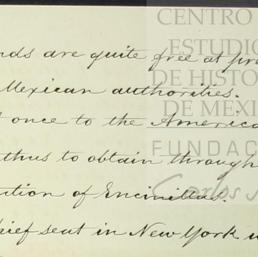 nds are quite free at pr
Mexican authorities.
t once to the America
thus to obtain through
ution of Encinillas.
hief seat in New York w
CENTRO
ESTUDIO
DE HISTO
DE MÉXI
FUNDAC
Carlos